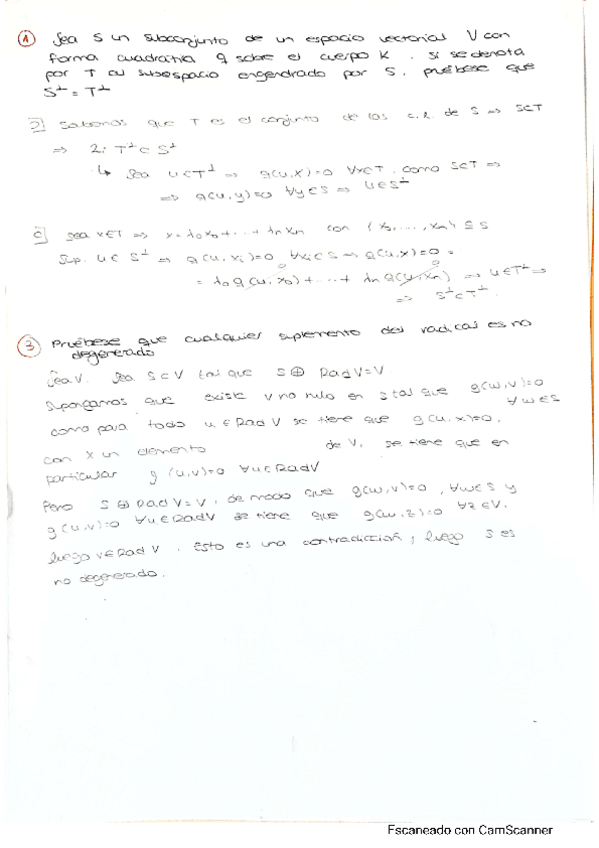 1 Sea S un subconjunto de un espacio vectorial V con
forma cuadrática g sobre el cuerpo K. Si se denota
por T al subespacio engendrado por S, pruébese que
S⊥ = T⊥
⊇ Sabemos que T es el conjunto de las c.l. de S ⇒ S⊂T
⇒ T⊥⊂ S⊥
↳ Sea u∈T⊥ ⇒ g(u,x)=0 ∀x∈T. como S⊂T ⇒
⇒ g(u,y)=0 ∀y∈S ⇒ u∈S⊥
⊂ Sea x∈T ⇒ x=λ0x0+...+λnxn con {x0,...,xn}⊆S
Sup. u∈ S⊥ ⇒ g(u,xi)=0 ∀xi∈S ⇒ g(u,x)=0=
= λ0g(u,x0)+...+ λng(u,xn) ⇒ u∈T⊥ ⇒
⇒ S⊥⊂T⊥.
3 Pruébese que cualquier suplemento del radical es no
degenerado
Sea V. Sea S⊂V tal que S⊕ Rad V=V
Supongamos que existe v no nulo en S tal que g(w,v)=0
∀w∈S
como para todo u∈Rad V se tiene que g(u,x)=0,
con x un elemento de V, se tiene que en
particular g(u,v)=0 ∀u∈Rad V
Pero S⊕Rad V=V, de modo que g(w,v)=0, ∀w∈S y
g(u,v)=0 ∀u∈Rad V se tiene que g(u,z)=0 ∀z∈V.
luego v∈Rad V. Esto es una contradicción, luego S es
no degenerado.
Escaneado con CamScanner